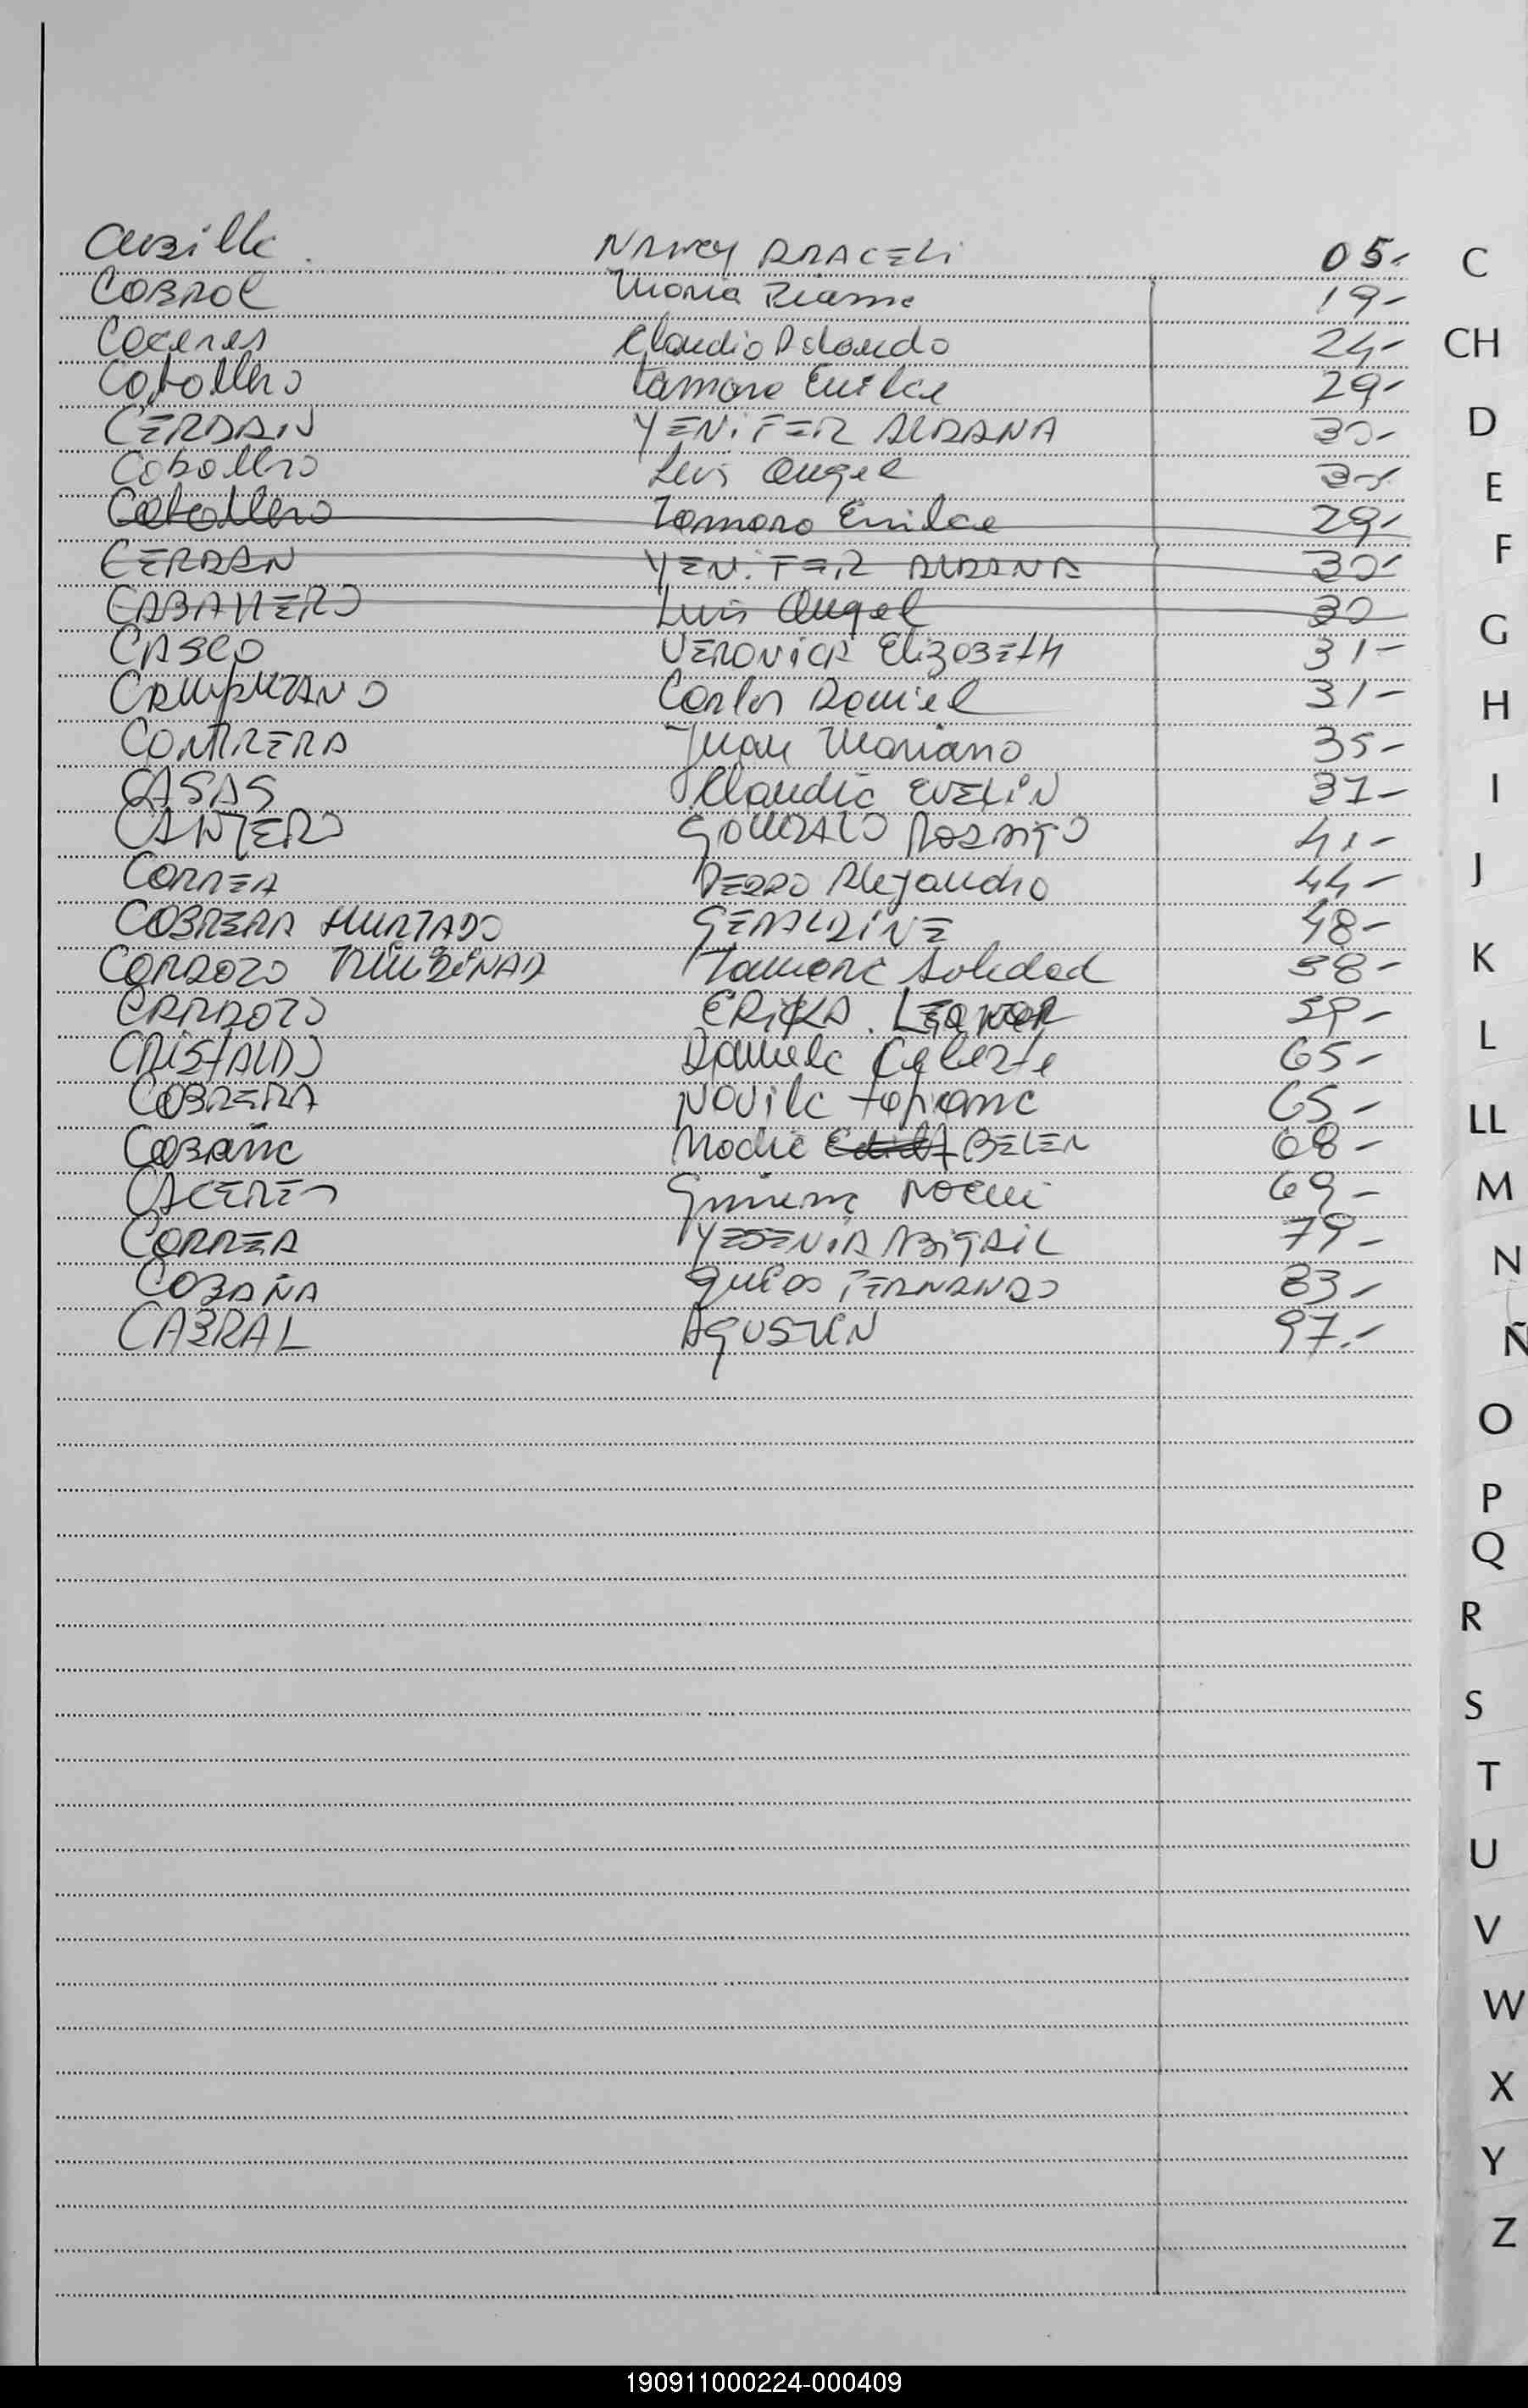 Cubilla NANCY ARACELI 05.-
CABRAL Maria Liliana 19-
C
Caceres Claudio Rolando 24-
CH
Caballero Tamara Emilce 29-
CERDAN YENIFER ALDANA 30-
D
Caballero Luis Angel 30-
E
Caballero Tamara Emilce 29-
CERDAN YENIFER ALDANA 30-
F
CABALLERO Luis Angel 30
G
CASCO VERONICA Elizabeth 31-
CAMPUZANO Carlos Daniel 31-
H
CONTRERA Juan Mariano 35-
CASAS Claudia EVELIN 37-
I
CANTERO GONZALO RODRIGO 41-
CORREA PEDRO Alejandro 44-
J
CABRERA HURTADO GERALDINE 48-
CARDOZO Tamara Soledad 58-
K
CARDOZO ERIKA LEONOR 59-
L
CRISTALDO Daniela Celeste 65-
CABRERA NOVILA 65-
LL
Cabaña Nadia BELEN 68-
CACERES NOEMI 69-
M
CORREA YESENIA ABIGAIL 79-
N
CABAÑA FERNANDO 83-
CABRAL AGUSTIN 97.-
Ñ
O
P
Q
R
S
T
U
V
W
X
Y
Z
190911000224-000409